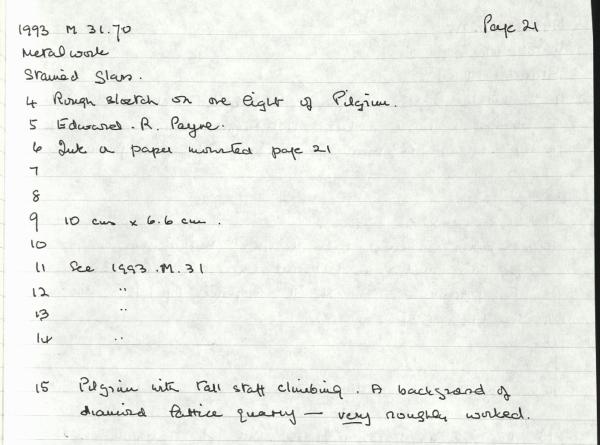 1993 M 31.70 Page 21
Metalwork
Stained Glass.
4 Rough sketch on one light of Pilgrim.
5 Edward. R. Payne.
6 Ink on paper mounted page 21
7
8
9 10 cms x 6.6 cm.
10
11 See 1993.M.31
12 "
13 "
14 "
15 Pilgrim with tall staff climbing. A background of
diamond lattice quarry — very roughly worked.